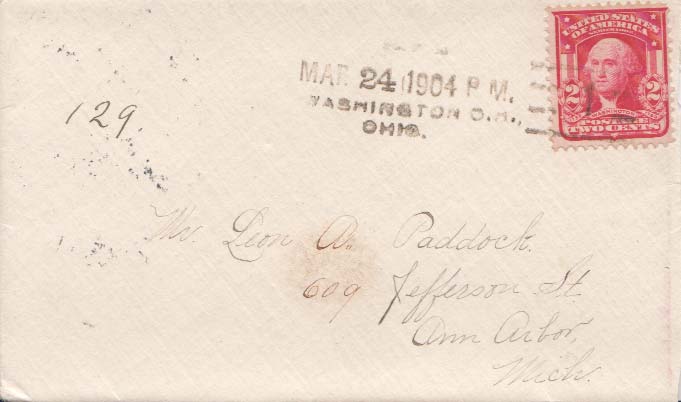 UNITED STATES
OF AMERICA
MAR 24 1904 P M.
WASHINGTON C.H.,
OHIO.
2 2
WASHINGTON
POSTAGE
TWO CENTS
129.
Mr. Leon A. Paddock.
609 Jefferson St
Ann Arbor,
Mich.